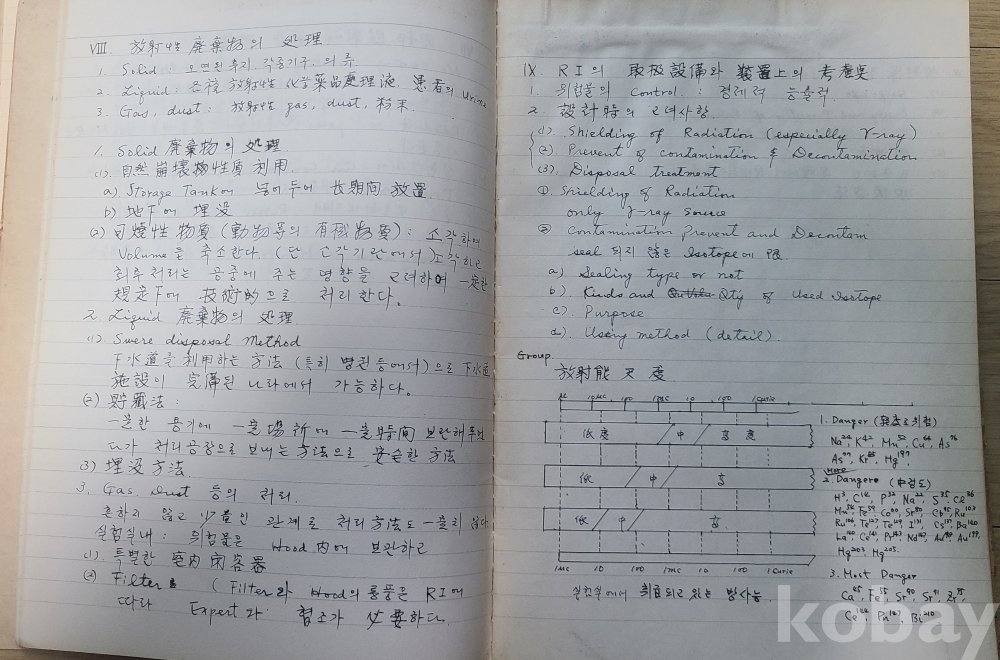 VIII. 放射性 廃棄物의 処理
1. Solid : 오염된 휴지, 각종기구, 의류
2. Liquid : 各種 放射性 化学薬品處理液, 患者의 Urine
3. Gas, dust : 放射性 gas, dust, 粉末
1. Solid 廃棄物의 処理
(1). 自然崩壊物性質 利用
a) Storage Tank에 넣어두어 長期間 放置
b) 地下에 埋没
(2) 可燒性物質 (動物等의 有機物質) : 소각하여
Volume을 축소한다. (단 소각기관에서) 소각하고
최후처리는 공중에 주는 影響을 고려하여 一定한
規定下에 技術的으로 처리한다.
2. Liquid 廃棄物의 処理
(1). Swere disposal Method
下水道를 利用하는 方法 (특히 병원등에서)으로 下水道
施設이 完備된 나라에서 가능하다.
(2) 貯藏法 :
一定한 용기에 一定場所에 一定時間 보관해 두었
다가 처리공장으로 보내는 方法으로 方法
3) 埋没方法
3. Gas, Dust 등의 처리
흔하지 않고 少量인 관계로 처리方法도 一定치 않다
실험실내 : 위험물은 Hood 内에 보관하고
(1). 特別한 室内 容器
(2) Filter (Filter와 Hood의 통풍은 RI에
따라 Expert와 협조가 必要하다.
IX. RI의 取扱設備와 装置上의 考慮
1. 위험물의 Control. :
2. 設計時의 고려사항
(1). Shielding of Radiation (especially γ-ray)
(2) Prevent of contamination & Decontamination
(3). Disposal treatment
① Shielding of Radiation
only γ-ray source
② Contamination Prevent and Decontam
seal 되지 않은 Isotope에 限
a) Sealing type or not
b). Kinds and Qty of Used Isotope
c). Purpose
d). Using method (detail).
Group
放射能 尺度
μc 10μc 100 1mc 10 100 1Curie
低度 中 高度
低 中 高
低 中 高
1μc 10 100 1mc 10 100 1Curie
실험실에서 취급되고 있는 방사능
1. Danger
Na²⁴, K⁴², Mn⁵², Cu⁶⁴, As⁷⁶
As⁷⁷, Kr⁸⁵, Hg¹⁹⁷
More
2. Danger (中程도)
H³, C¹⁴, P³², Na²², S³⁵, Cl³⁶
Mn⁵⁴, Fe⁵⁹, Co⁶⁰, Sr⁸⁹, Cb⁹⁵, Ru¹⁰³
Ru¹⁰⁶, Te¹²⁷, Te¹²⁹, I¹³¹, Cs¹³⁷, Ba¹⁴⁰
La¹⁴⁰, Ce¹⁴¹, Pr¹⁴³, Nd¹⁴⁷, Au¹⁹⁸, Au¹⁹⁹,
Hg²⁰³, Hg²⁰⁵.
3. Most Danger
Ca⁴⁵, Fe⁵⁵, Sr⁹⁰, Sr⁹¹, Zr⁹⁵,
Ce¹⁴⁴, Pm¹⁴⁷, Bi²¹⁰
kobay